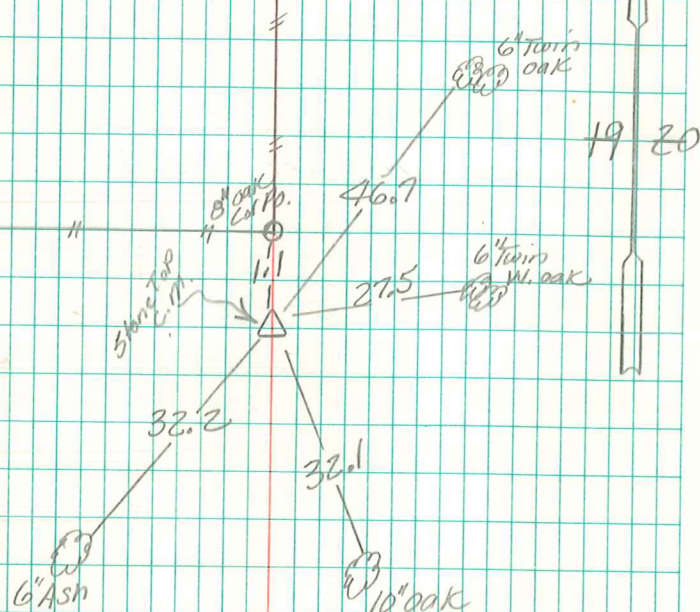 6" Twin
oak
19 20
8" oak
Cor Po.
46.7
1.1
6" Twin
W. oak
27.5
Stone Top
C.M.
32.2
32.1
6" Ash
10" oak